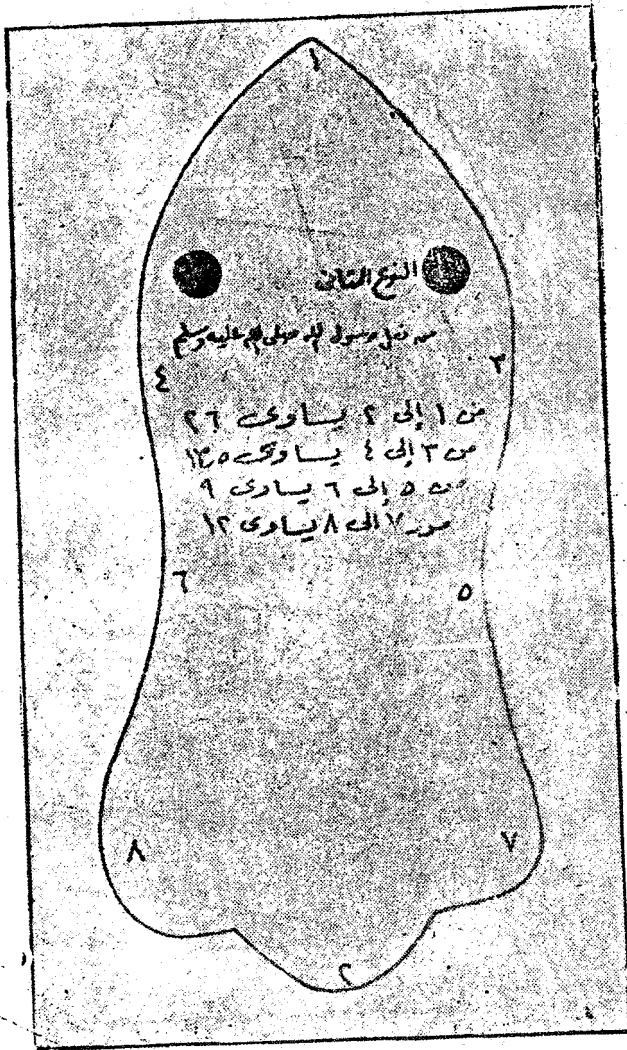 ١
النوع الثاني
من نعل رسول الله صلى الله عليه وسلم
٣
٤
من ١ إلى ٢ يساوى ٢٦
من ٣ إلى ٤ يساوى
من ٥ إلى ٦ يساوى ٩
من ٧ الى ٨ يساوى ١٢
٥
٦
٧
٨
٢